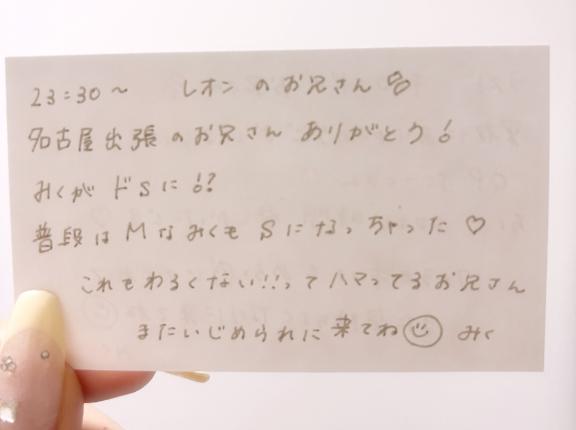 23:30〜 レオンのお兄さん
名古屋出張のお兄さん ありがとう!
みくが ドSに!?
普段は Mなみくも Sになっちゃった♡
これもわるくない!!ってハマってるお兄さん
またいじめられに来てね☺ みく